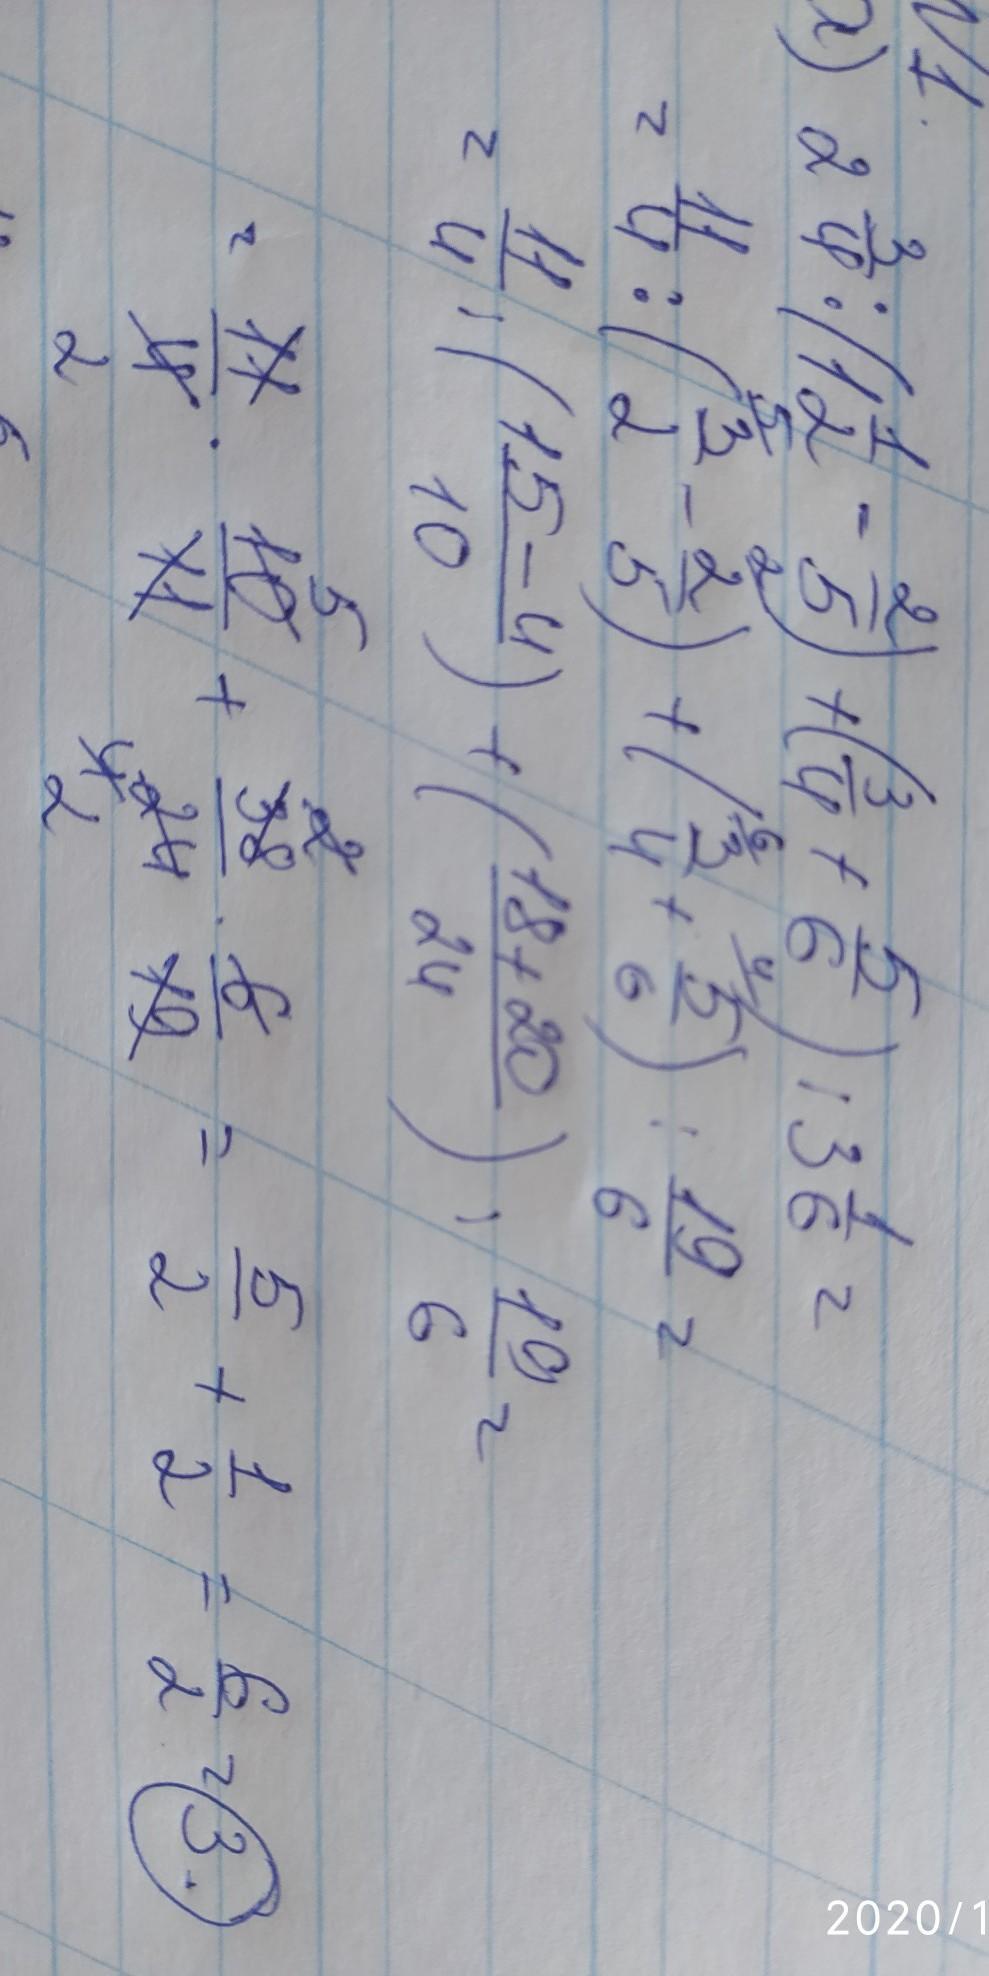 N1.
а) 2 3/4 : (1 1/2 - 2/5) + (3/4 + 5/6) : 3 1/6 =
= 11/4 : (3/2 - 2/5) + (3/4 + 5/6) : 19/6 =
= 11/4 : (15-4/10) + (18+20/24) : 19/6 =
= 11/4 · 10/11 + 38/24 · 6/19 = 5/2 + 1/2 = 6/2 = 3.
2020/1